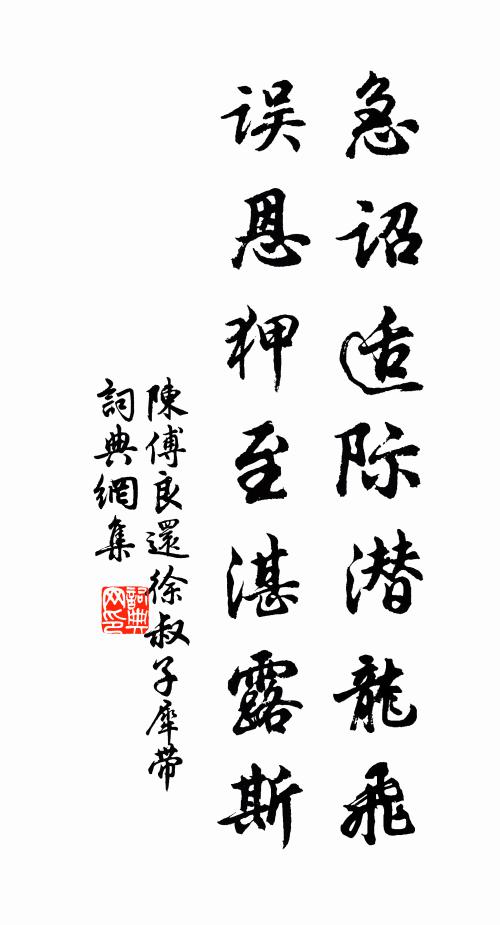 急诏适际潜龍飛
误恩狎至湛露斯
陳傅良還徐叔子犀带
詞典網集
詞典网印